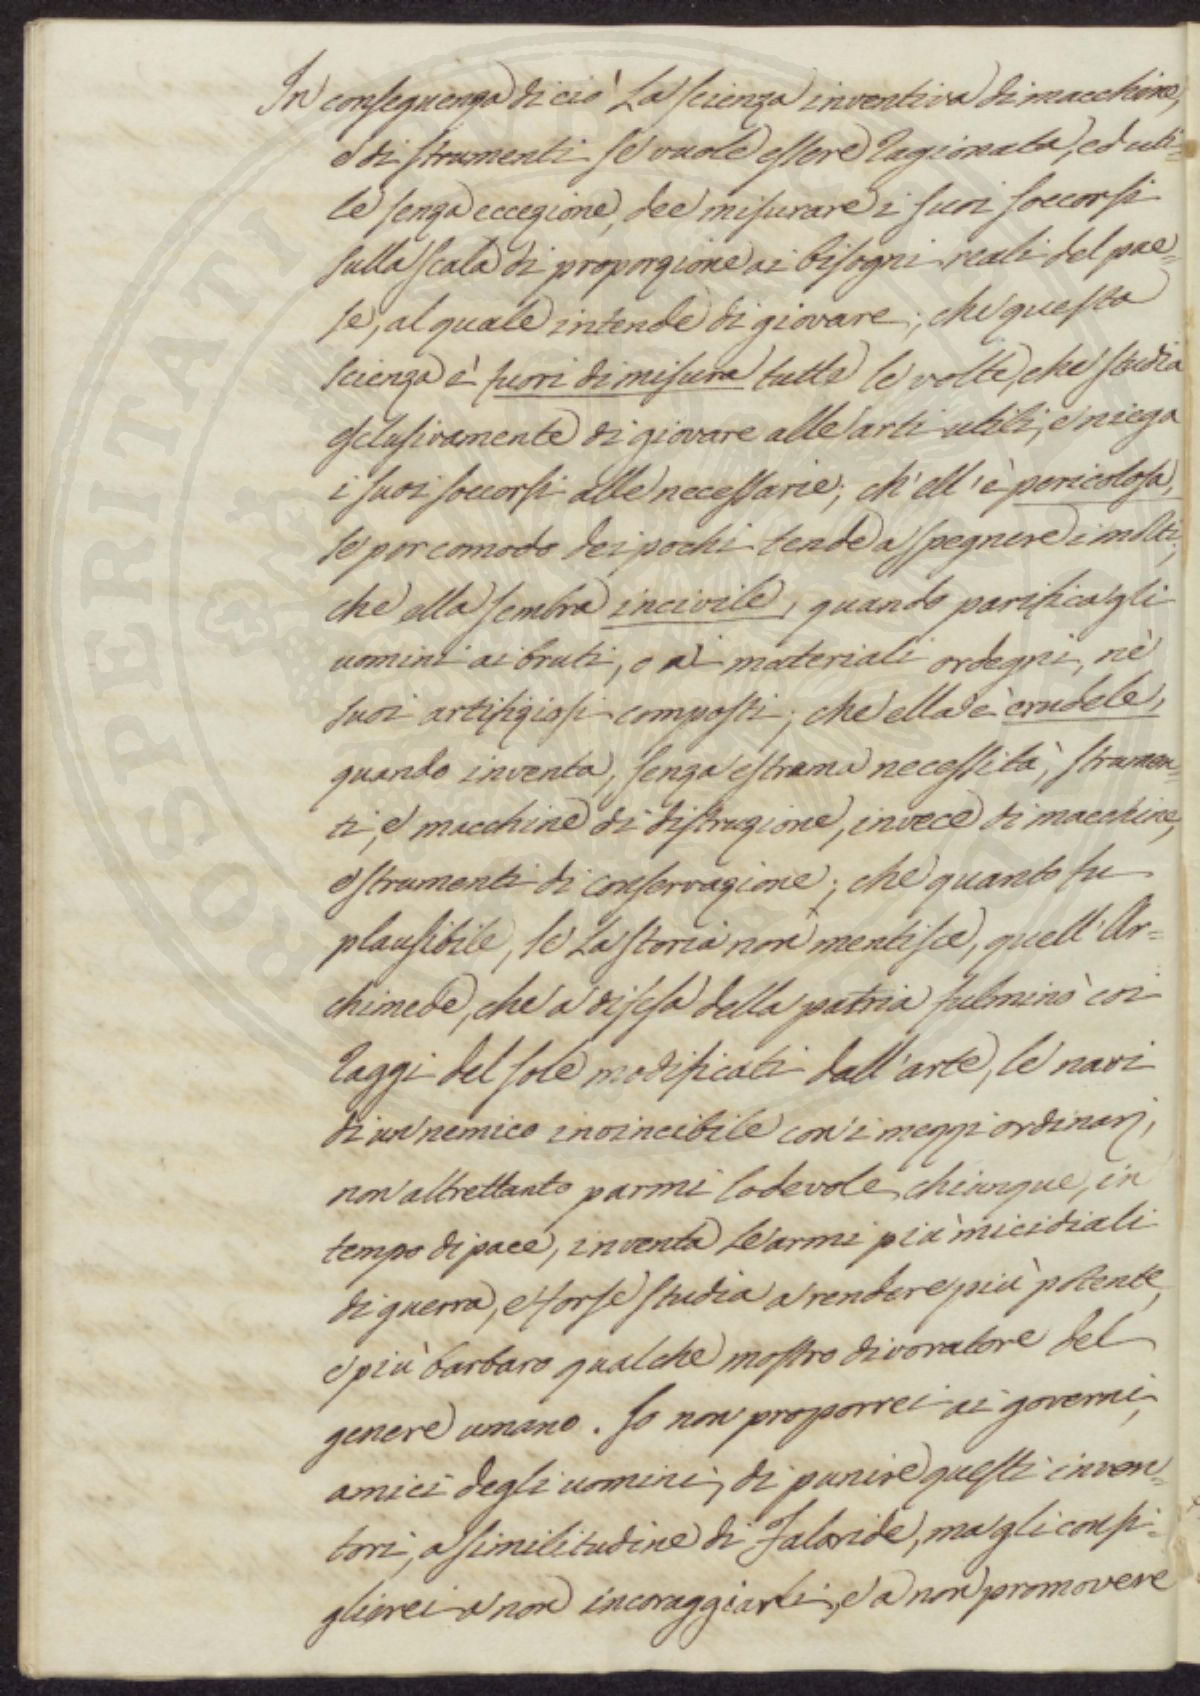 In conseguenza di ciò La scienza inventiva di macchine,
e di strumenti se vuole essere ragionata, ed uti=
le senza eccezione, dee misurare i suoi soccorsi
sulla scala di proporzione ai bisogni reali del pae=
se, al quale intende di giovare; che questa
scienza è fuori di misura tutte le volte, che studia
esclusivamente di giovare alle arti utili, e niega
i suoi soccorsi alle necessarie; ch'ell'è pericolosa,
se por comodo dei pochi tende a spegnere i molti;
che ella sembra incivile, quando parifica gli
uomini ai bruti, o ai materiali ordegni, nè
suoi artifiziosi composti; che ella è crudele,
quando inventa, senza estrema necessità, strumen=
ti, e macchine di distruzione, invece di macchine,
e strumenti di conservazione; che quanto fu
plausibile, se La storia non mentisce, quell'Ar=
chimede, che a difesa della patria fulminò coi
raggi del sole modificati dall'arte, le navi
di un nemico invincibile con i mezzi ordinarj,
non altrettanto parmi lodevole chiunque, in
tempo di pace, inventa le armi più micidiali
di guerra, e forse studia a rendere più potente,
e più barbaro qualche mostro divoratore del
genere umano. Io non proporrei ai governi,
amici degli uomini, di punire questi inven=
tori, a similitudine di Falaride, ma gli consi=
glierei a non incoraggiarli, e a non promovere
PROSPERITATI PUBLICAE